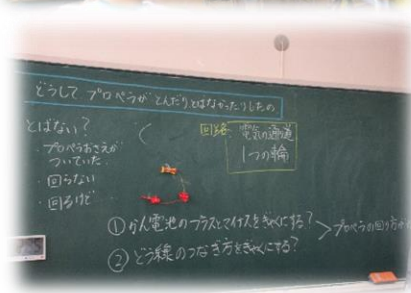 どうして プロペラが とんだりとばなかったりしたの
とばない?
・プロペラおさえが
ついていた
・回らない
・回るけど
回路
電気の通道
1つの輪
① かん電池のプラスとマイナスをぎゃくにする?
② どう線のつなぎ方をぎゃくにする?
プロペラの回り方が